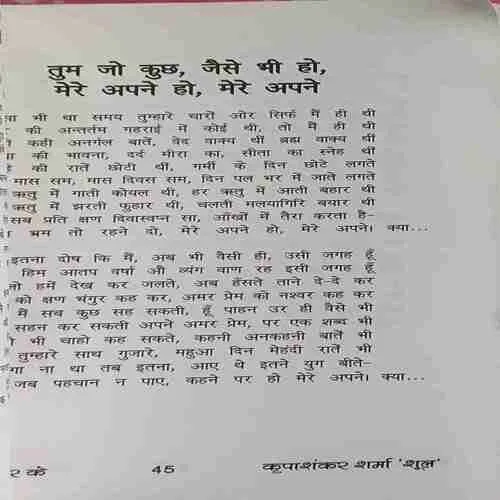 तुम जो कुछ, जैसे भी हो,
मेरे अपने हो, मेरे अपने
भी था समय तुम्हारे चारों ओर सिर्फ मैं ही थी
की अन्तर्तम गहराई में कोई थी, तो मैं ही थी
कही अनर्गल बातें, वेद वाक्य थीं ब्रह्म वाक्य थीं
की भावना, दर्द मीरा का, सीता का स्नेह थीं
की रातें छोटी थीं, गर्मी के दिन छोटे लगते
मास सम, मास दिवस सम, दिन पल भर में जाते लगते
ऋतु में गाती कोयल थी, हर ऋतु में आती बहार थी
ऋतु में झरती फुहार थी, चलती मलयागिरि बयार थी
सब प्रति क्षण दिवास्वप्न सा, आँखों में तैरा करता है-
भ्रम तो रहने दो, मेरे अपने हो, मेरे अपने। क्या...
इतना दोष कि मैं, अब भी वैसी ही, उसी जगह हूँ
हिम आतप वर्षा औ व्यंग वाण रह इसी जगह हूँ
हमें देख कर जलते, अब हँसते ताने दे-दे कर
को क्षण भंगुर कह कर, अमर प्रेम को नश्वर कह कर
मैं सब कुछ सह सकती, हूँ पाहन उर ही वैसे भी
सहन कर सकती अपने अमर प्रेम, पर एक शब्द भी
भी चाहो कह सकते, कहनी अनकहनी बातें भी
तुम्हारे साथ गुजारे, महुआ दिन मेहंदी रातें भी
ना था तब इतना, आए थे इतने युग बीते-
जब पहचान न पाए, कहने पर हो मेरे अपने। क्या...
र के 45 कृपाशंकर शर्मा 'शूल'